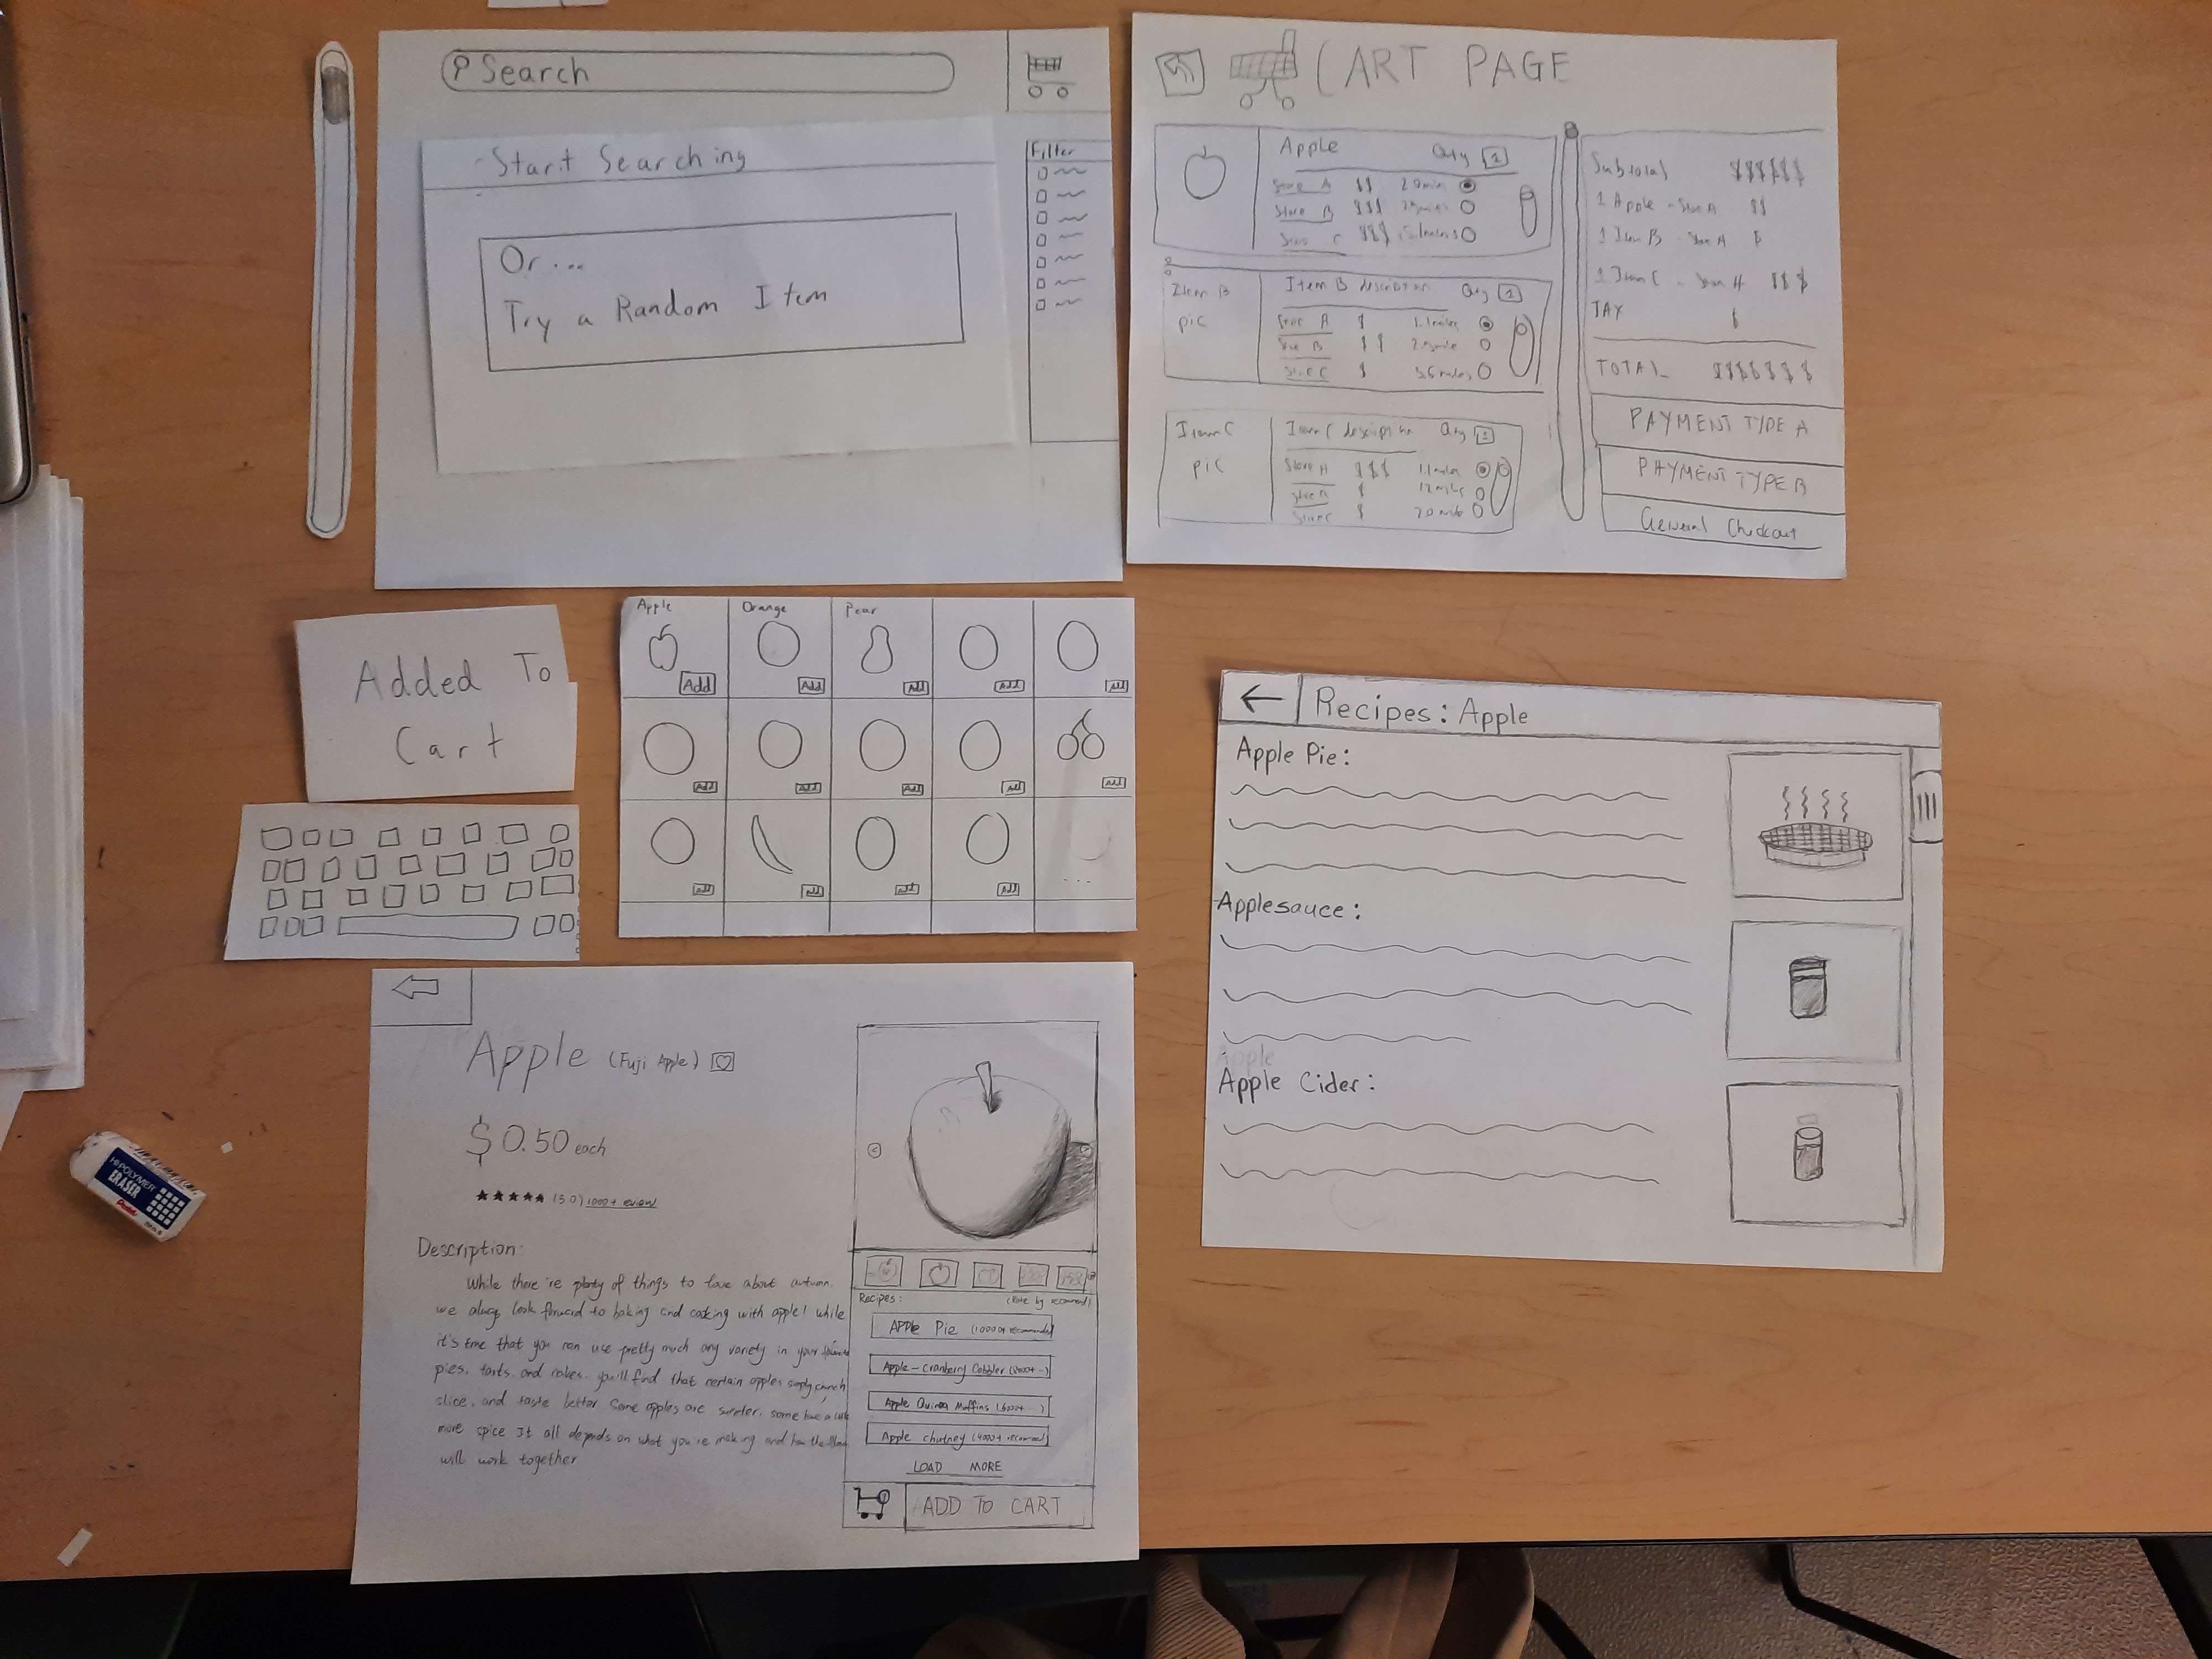 Search
Start Searching
Or...
Try a Random Item
Filter
CART PAGE
Apple Qty 1
Store A $$ 20min
Store B $$$
Store C $$$
Item B
pic
Item B description Qty 1
Store A $ 1.1miles
Store B $$
Store C $
Item C
pic
Item C description Qty 1
Store A $$$ 1.1miles
Store B $
Store C $
Subtotal $$$$$$
1 Apple - Store A $$
1 Item B - Store A $
1 Item C - Store A $$$
TAX $
TOTAL $$$$$$$
PAYMENT TYPE A
PAYMENT TYPE B
General Checkout
Added To
Cart
Apple
Orange
Pear
Add
Add
Add
Add
Add
Add
Add
Add
Add
Add
Add
Add
Add
Add
...
Recipes: Apple
Apple Pie:
Applesauce:
Apple
Apple Cider:
HI-POLYMER
ERASER
Pentel
Apple (Fuji Apple)
$0.50 each
(5.0) 1000+ eview
Description:
While there're plenty of things to love about autumn.
we always look forward to baking and cooking with apple! while
it's true that you can use pretty much any variety in your
pies, tarts, and cakes. you'll find that certain apples simply crunch
slice, and taste better some apples are sweeter, some have a little
more spice It all depends on what you're making and how the
will work together
Recipes: (Rate by recomend)
APPle Pie (10000+ recomended)
Apple-Cranberry Cobbler
Apple Quinoa Muffins (6000+ ...)
Apple chutney (4000+ recomend)
LOAD MORE
ADD TO CART